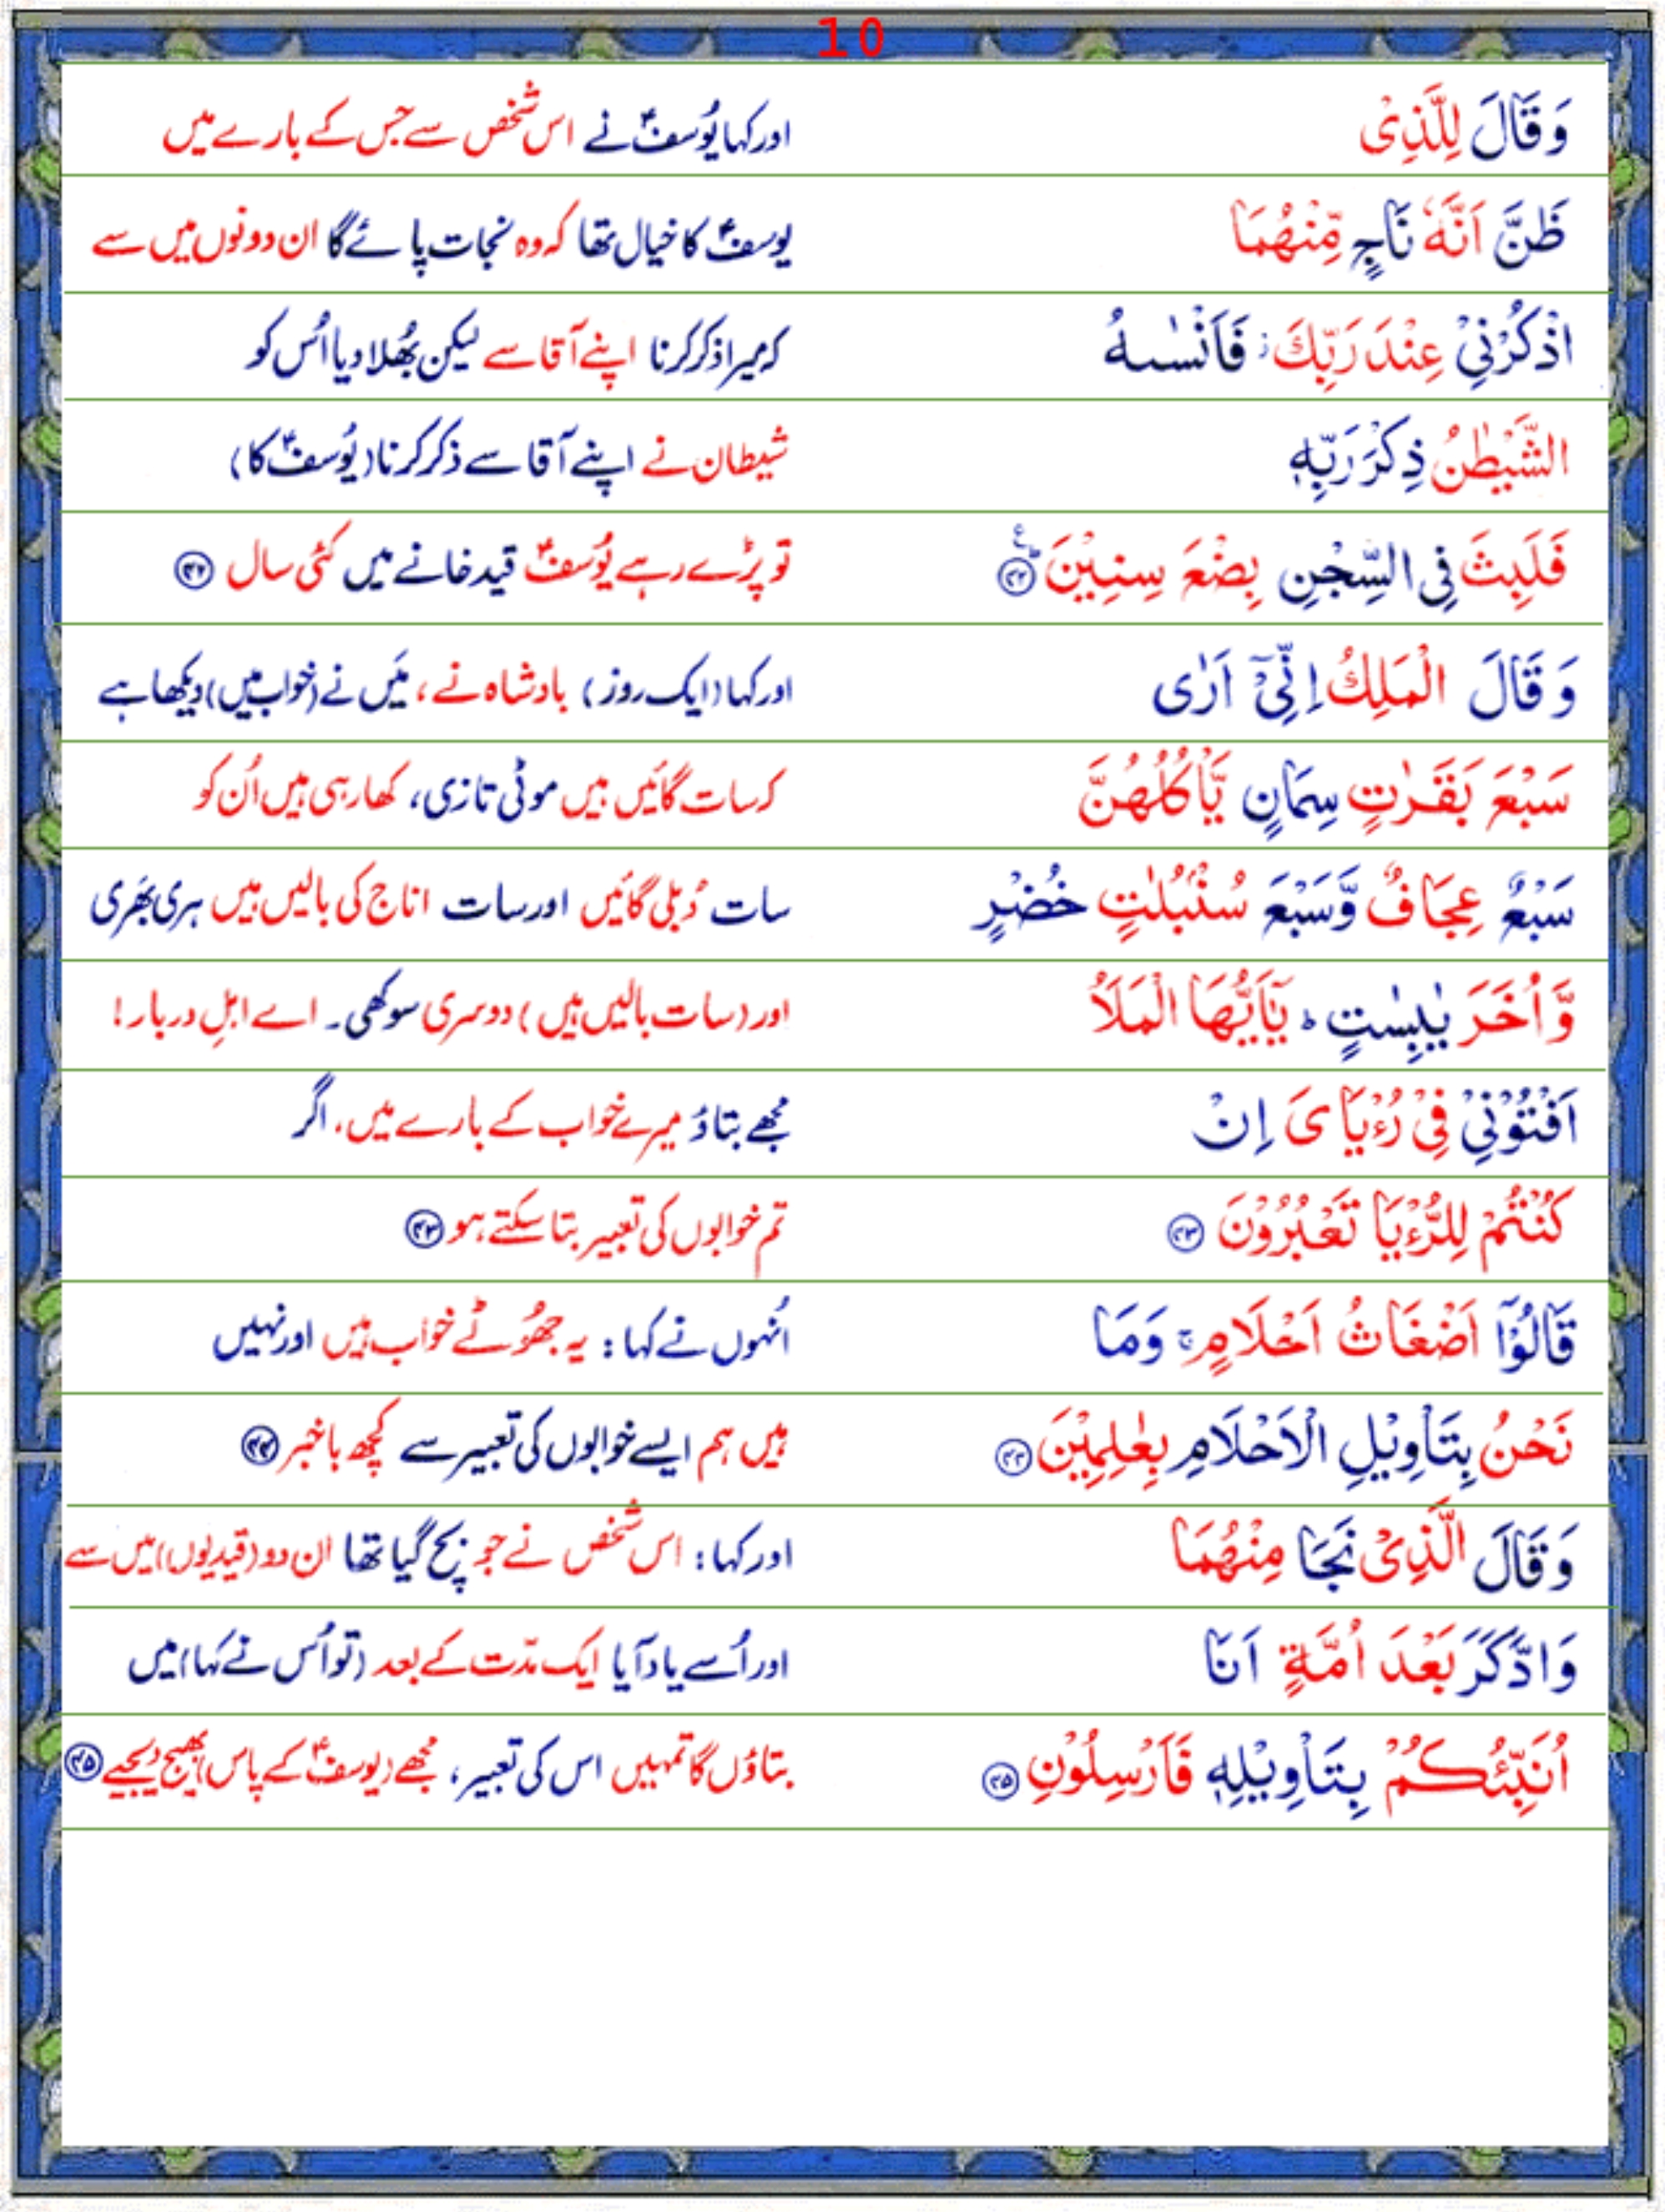 10
وَقَالَ لِلَّذِىْ اور کہا یُوسفؑ نے اس شخص سے جس کے بارے میں
ظَنَّ اَنَّهٗ نَاجٍ مِّنْهُمَا یوسفؑ کا خیال تھا کہ وہ نجات پائے گا ان دونوں میں سے
اذْكُرْنِىْ عِنْدَ رَبِّكَ ز فَاَنْسٰىهُ کہ میرا ذکر کرنا اپنے آقا سے لیکن بُھلا دیا اُس کو
الشَّيْطٰنُ ذِكْرَ رَبِّهٖ شیطان نے اپنے آقا سے ذکر کرنا (یُوسفؑ کا)
فَلَبِثَ فِى السِّجْنِ بِضْعَ سِنِيْنَ ؕ ع ۴۲ تو پڑے رہے یُوسفؑ قید خانے میں کئی سال ۴۲
وَقَالَ الْمَلِكُ اِنِّىْۤ اَرٰى اور کہا (ایک روز) بادشاہ نے ، مَیں نے (خواب میں) دیکھا ہے
سَبْعَ بَقَرٰتٍ سِمَانٍ يَّاْكُلُهُنَّ کہ سات گائیں ہیں موٹی تازی، کھا رہی ہیں اُن کو
سَبْعٌ عِجَافٌ وَّسَبْعَ سُنْۢبُلٰتٍ خُضْرٍ سات دُبلی گائیں اور سات اناج کی بالیں ہیں ہری بَھری
وَّاُخَرَ يٰبِسٰتٍ ؕ يٰۤاَيُّهَا الْمَلَاُ اور (سات بالیں ہیں) دوسری سوکھی۔ اے اہلِ دربار!
اَفْتُوْنِىْ فِىْ رُءْيَاىَ اِنْ مجھے بتاؤ میرے خواب کے بارے میں، اگر
كُنْتُمْ لِلرُّءْيَا تَعْبُرُوْنَ ۴۳ تم خوابوں کی تعبیر بتا سکتے ہو ۴۳
قَالُوْۤا اَضْغَاثُ اَحْلَامٍ ۚ وَمَا اُنہوں نے کہا : یہ جھُوٹے خواب ہیں اور نہیں
نَحْنُ بِتَاْوِيْلِ الْاَحْلَامِ بِعٰلِمِيْنَ ۴۴ ہیں ہم ایسے خوابوں کی تعبیر سے کچھ باخبر ۴۴
وَقَالَ الَّذِىْ نَجَا مِنْهُمَا اور کہا : اس شخص نے جو بچ گیا تھا ان دو (قیدیوں) میں سے
وَادَّكَرَ بَعْدَ اُمَّةٍ اَنَا اور اُسے یاد آیا ایک مدّت کے بعد (تو اُس نے کہا) میں
اُنَبِّئُكُمْ بِتَاْوِيْلِهٖ فَاَرْسِلُوْنِ ۴۵ بتاؤں گا تمہیں اس کی تعبیر، مجھے (یوسفؑ کے پاس) بھیج دیجیے ۴۵